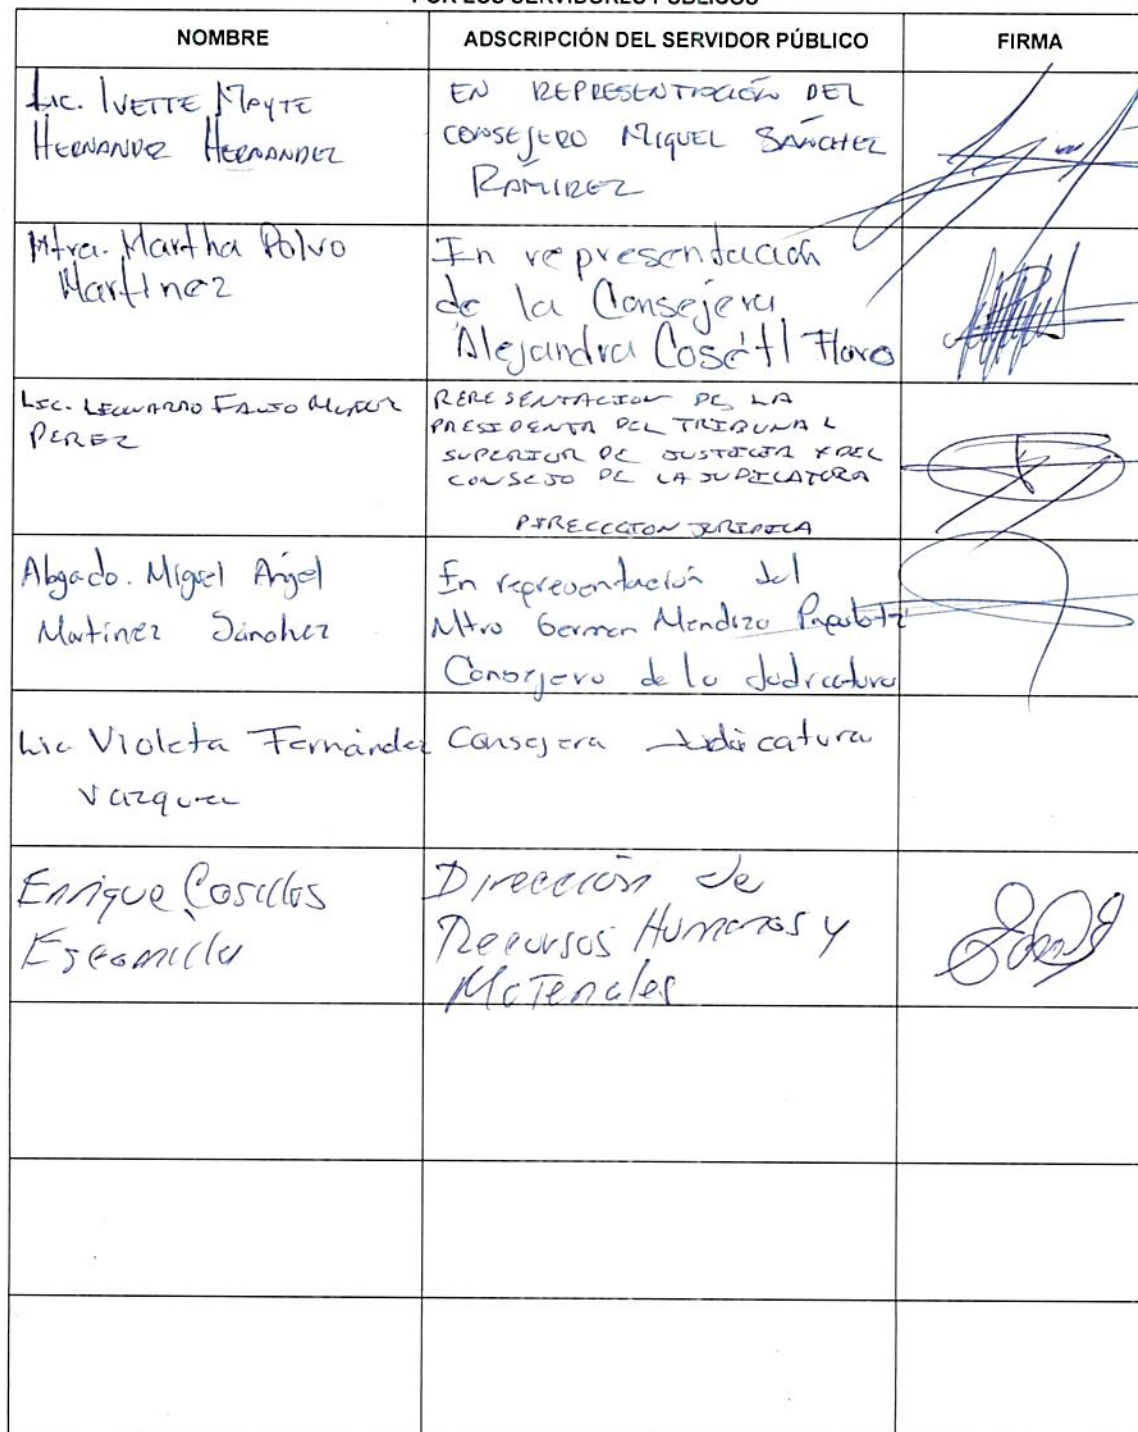 POR LOS SERVIDORES PÚBLICOS
NOMBRE
ADSCRIPCIÓN DEL SERVIDOR PÚBLICO
FIRMA
Lic. IVETTE MAYTE
HERNANDEZ HERNANDEZ
EN REPRESENTACIÓN DEL
CONSEJERO MIGUEL SÁNCHEZ
RAMÍREZ
Mtra. Martha Polvo
Martinez
In representación
de la Consejera
Alejandra Cosetl Flores
LIC. LEONARDO MUÑOZ
PEREZ
RERESENTACION DE LA
PRESIDENTA DEL TRIBUNAL
SUPERIOR DE JUSTICIA Y DEL
CONSEJO DE LA JUDICATURA
DIRECCCION JURIDICA
Abgado. Miguel Ángel
Martinez Sánchez
En representación del
Mtro German Mendiza
Consejero de la Judicatura
Lic Violeta Fernández
Vazquez
Consejera Judicatura
Enrique
Escamilla
Dirección de
Recursos Humanos y
Materiales